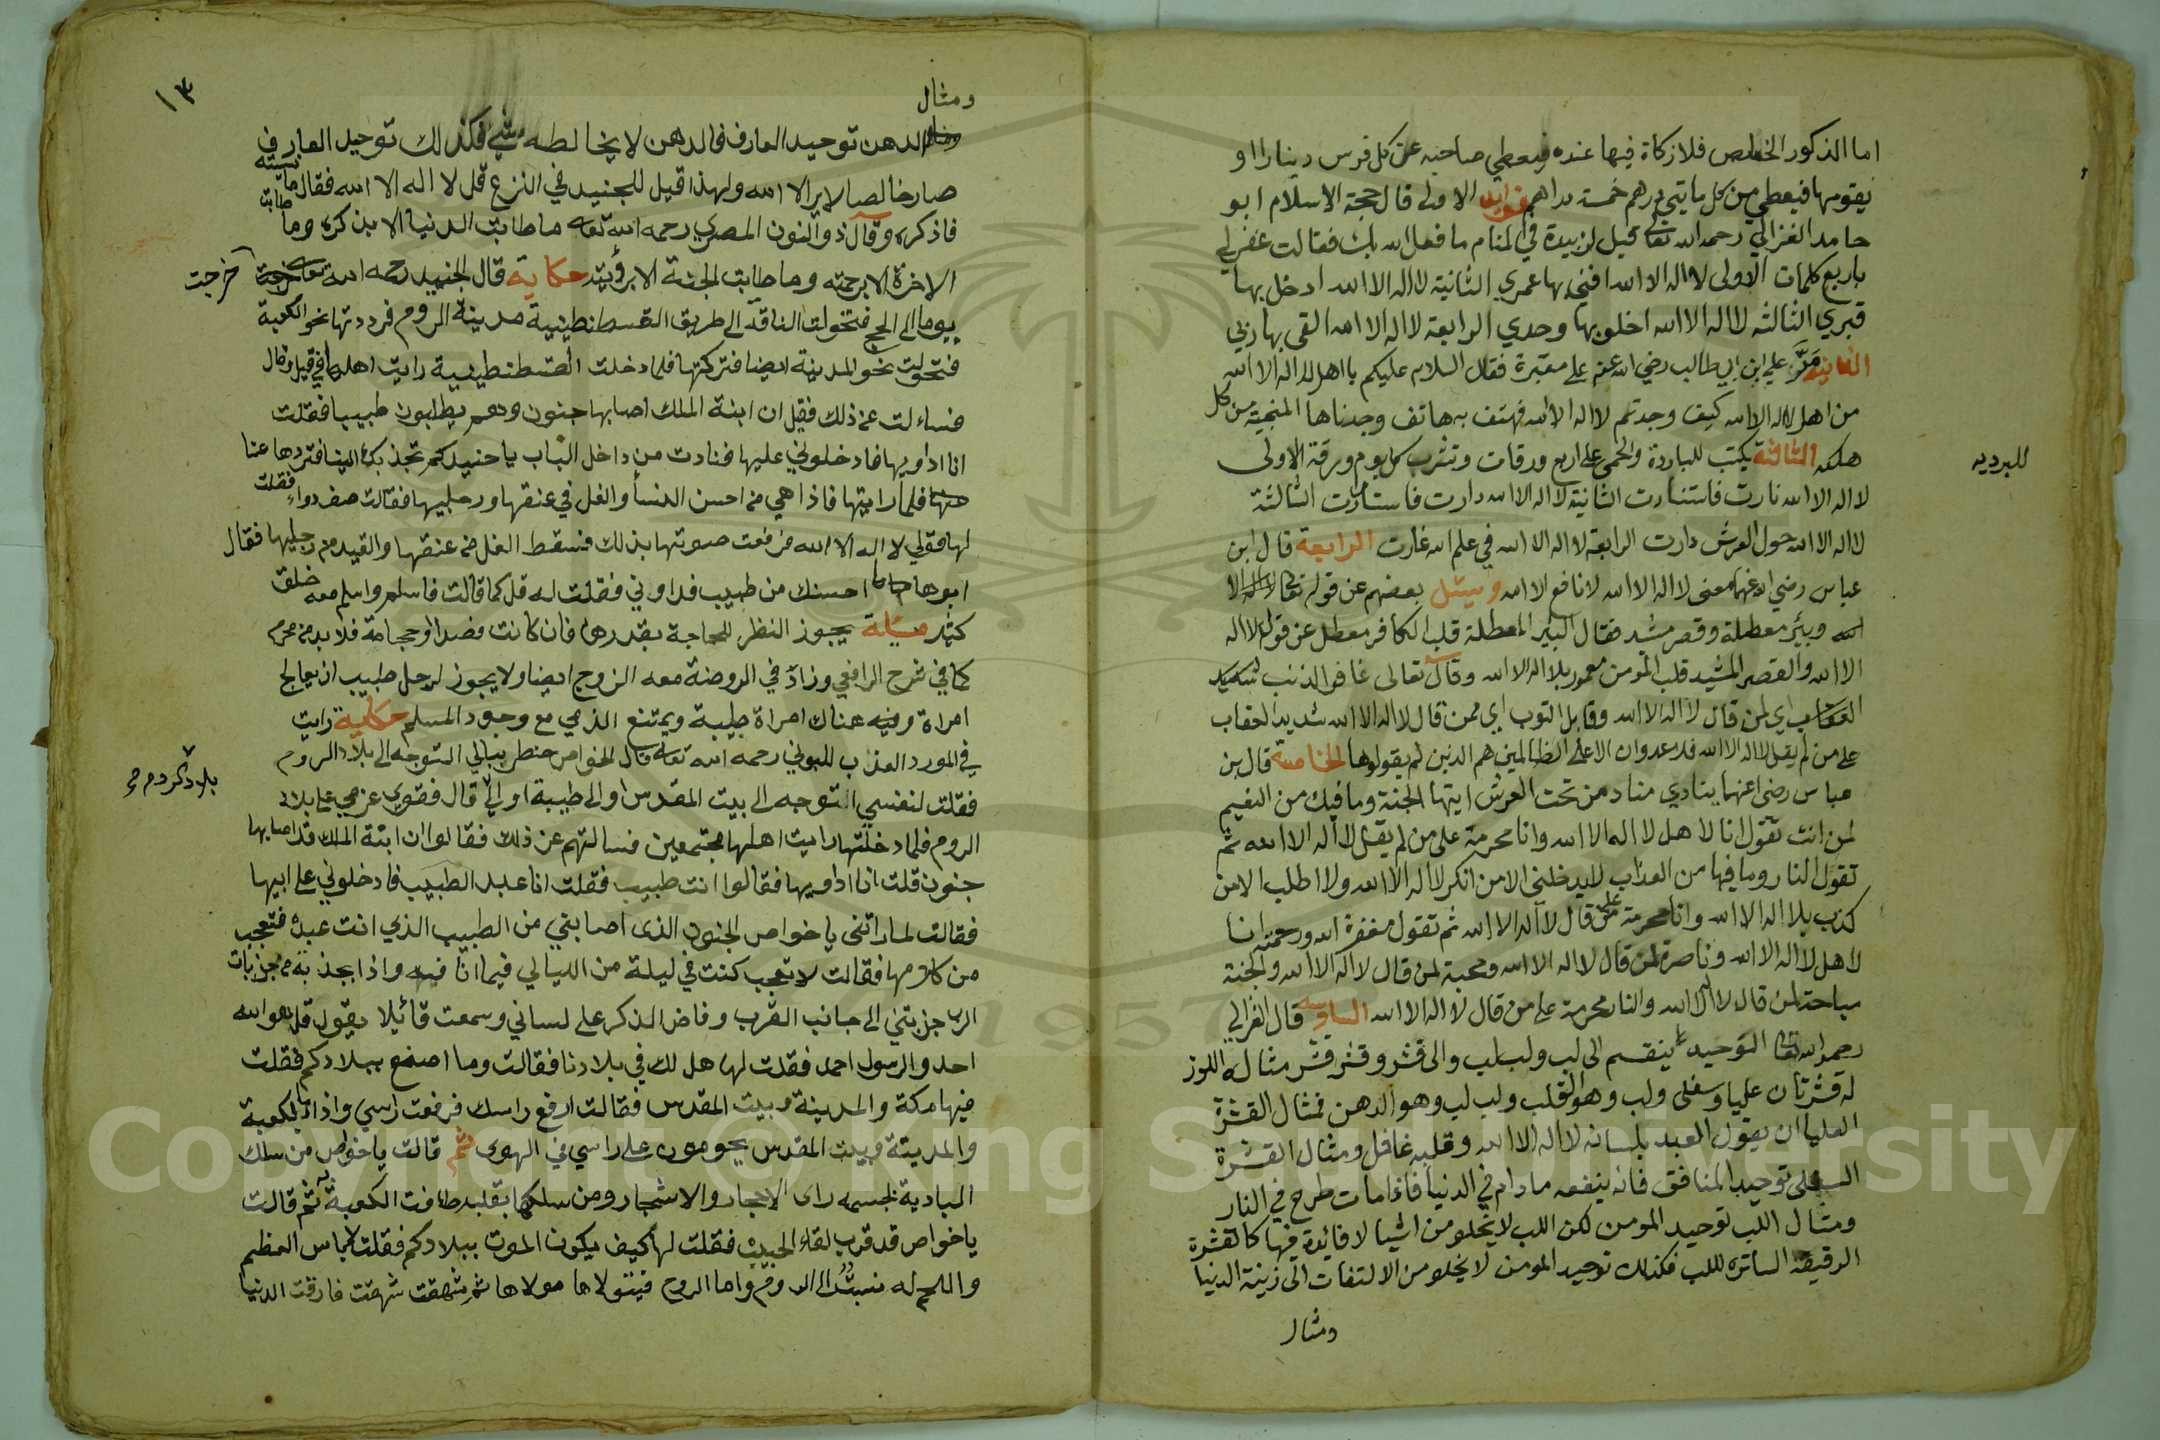 اما الذكور الخلص فلا زكاة فيها عنده فيعطي صاحبه عن كل فرس دينارا او
يقومها فيعطي من كل مايتي درهم خمسة دراهم فوايد الاولى قال حجة الاسلام ابو
حامد الغزالي رحمه الله تعالى قيل لزبيدة في المنام ما فعل الله بك فقالت غفر لي
باربع كلمات الاولى لا اله الا الله افني بها عمري الثانية لا اله الا الله ادخل بها
قبري الثالثه لا اله الا الله اخلو بها وحدي الرابعة لا اله الا الله القى بها ربي
الثانية مر علي ابن ابي طالب رضي الله عنه على مقبرة فقال السلام عليكم يا اهل لا اله الا الله
من اهل لا اله الا الله كيف وجدتم لا اله الا الله فهتف به هاتف وجدناها المنجية من كل
هلكه الثالثة يكتب للباردة والحمى على اربع ورقات وتشرب كل يوم ورقة الاولى
للبرديه
لا اله الا الله نارت فاستنارت الثانية لا اله الا الله دارت فاستدارت الثالثة
لا اله الا الله حول العرش دارت الرابعة لا اله الا الله في علم الله غارت الرابعة قال ابن
عباس رضي الله عنهما معنى لا اله الا الله لا نافع الا الله وسئل بعضهم عن قوله تعالى
وبير معطلة وقصر مشيد فقال البير المعطلة قلب الكافر معطل عن قول لا اله
الا الله والقصر المشيد قلب المومن معمور بلا اله الا الله وقال تعالى غافر الذنب
اي لمن قال لا اله الا الله وقابل التوب اي ممن قال لا اله الا الله شديد العقاب
على من لم يقل لا اله الا الله فلا عدوان الا على الظالمين هم الذين لم يقولوها الخامسة قال بن
عباس رضي الله عنهما ينادي مناد من تحت العرش ايتها الجنة وما فيك من النعيم
لمن انت تقول انا لاهل لا اله الا الله وانا محرمة على من لم يقل لا اله الا الله ثم
تقول النار وما فيها من العذاب لا يدخلني الا من انكر لا اله الا الله ولا اطلب الا من
كذب بلا اله الا الله وانا محرمة على من قال لا اله الا الله ثم تقول مغفرة الله ورحمته انا
لاهل لا اله الا الله وناصرة لمن قال لا اله الا الله ومحبة لمن قال لا اله الا الله والجنة
مباحة لمن قال لا اله الا الله والنار محرمة على من قال لا اله الا الله السادسه قال الغزالي
رحمه الله تعالى التوحيد ينقسم الى لب ولب لب والى قشر وقشر قشر مثاله اللوز
له قشرتان عليا وسفلى ولب وهو القلب ولب لب وهو الدهن فمثال القشرة
العليا ان يقول العبد بلسانه لا اله الا الله وقلبه غافل ومثال القشرة
السفلى توحيد المنافق فانه ينفعه ما دام في الدنيا فاذا مات طرح في النار
ومثال اللب توحيد المومن لكن اللب لا يخلو من اشيا لا فائدة فيها كالقشرة
الرقيقة الساترة لللب فكذلك توحيد المومن لا يخلو من الالتفات الى زينة الدنيا
ومثال
١٣
ومثال
الدهن توحيد العارف فالدهن لا يخالطه شي فكذلك توحيد العارف
صار خالصا لا يرا الا الله ولهذا قيل للجنيد في النزع قل لا اله الا الله فقال ما نسيته
فاذكره وقال ذو النون المصري رحمه الله تعالى ما طابت الدنيا الا بذكره وما طابت
الاخرة الا برحمته وما طابت الجنة الا برؤيته حكاية قال الجنيد رحمه الله تعالى خرجت
يوما الى الحج فتحولت الناقة الى طريق القسطنطينية مدينة الروم فرددتها نحو الكعبة
فتحولت نحو المدينة ايضا فتركتها فلما دخلت القسطنطينية رايت اهلها في قيل وقال
فساءلت عن ذلك فقيل ان ابنة الملك اصابها جنون وهم يطلبون طبيبا فقلت
انا اداويها فادخلوني عليها فنادت من داخل الباب يا جنيد كم تجذبك الينا فتردها عنا
فلما رايتها فاذا هي من احسن النسا والغل في عنقها ورجليها فقالت صف دواء فقلت
لها قولي لا اله الا الله فرفعت صوتها بذلك فسقط الغل من عنقها والقيد من رجليها فقال
ابوها ما احسنك من طبيب فداوني فقلت له قل كما قالت فاسلم واسلم معه خلق
كثير مسئلة يجوز النظر للحاجة بقدرها فان كانت فصدا او حجامة فلا بد من محرم
كما في شرح الرافعي وزاد في الروضة معه الزوج ايضا ولا يجوز لرجل طبيب ان يعالج
امراة وفيه هناك امراة طبيبة ويمتنع الذمي مع وجود المسلم حكاية رايت
في المورد العذاب للبوني رحمه الله تعالى قال الخواص خطر ببالي التوجه الى بلاد الروم
فقلت لنفسي التوجه الى بيت المقدس او الى طيبة اولى قال فقوي عزمي على بلاد
الروم فلما دخلتها رايت اهلها مجتمعين فسالتهم عن ذلك فقالوا ان ابنة الملك قد اصابها
جنون قلت انا اداويها فقالوا انت طبيب فقلت انا عبد الطبيب فادخلوني على ابيها
فقالت لما راتني يا خواص الجنون الذى اصابني من الطبيب الذي انت عبده فتعجبت
من كلامها فقالت لا تعجب كنت في ليلة من الليالي فيما انا فيه واذا بجذبة من جذبات
الرب جذبتني الى جانب القرب وفاض الذكر على لساني وسمعت قائيلا يقول قل هو الله
احد والرسول احمد فقلت لها هل لك في بلادنا فقالت وما اصنع ببلادكم فقلت
فيها مكة والمدينة وبيت المقدس فقالت ارفع راسك فرفعت راسي واذا بالكعبة
والمدينة وبيت المقدس يحومون على راسي في الهوى ثم قالت يا خواص من سلك
البادية بجسمه راى الاحجار والاشجار ومن سلكها بقلبه طافت الكعبة به ثم قالت
يا خواص قد قرب لقاء الحبيب فقلت لها كيف يكون الموت ببلادكم فقلت لا باس العظم
واللحم له نسبت الى الروم واما الروح فيتولاها مولاها ثم شهقت شهقت فارقت الدنيا